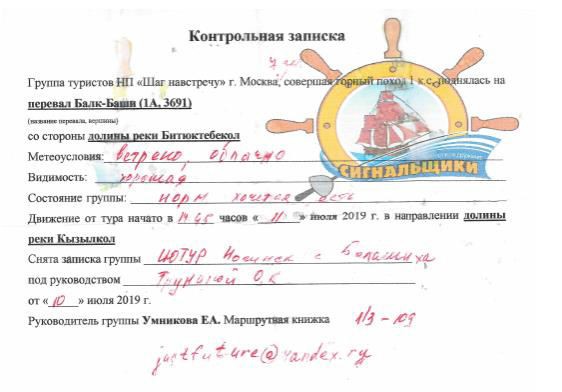 Контрольная записка
Группа туристов НП «Шаг навстречу» г. Москва, совершая горный поход 1 к.с, поднялась на
перевал Балк-Баши (1А, 3691)
(название перевала, вершины)
со стороны долины реки Битюктебекол
Метеоусловия: ветрено, облачно
Видимость: хорошая
Состояние группы: норм хочется есть
СИГНАЛЬЩИКИ
Движение от тура начато в 14.45 часов «11» июля 2019 г. в направлении долины
реки Кызылкол
Снята записка группы ЦЮТУР Ногинск с Балашиха
под руководством
от «10» июля 2019 г.
Руководитель группы Умникова ЕА. Маршрутная книжка 1/3-109
justfuture@yandex.ry